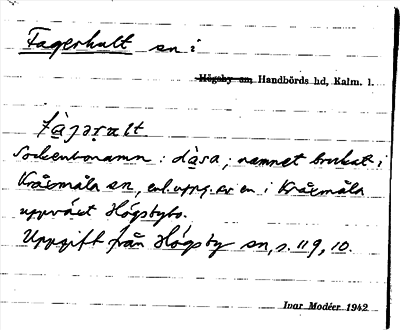 Fagerhult sn i
Högsby sn, Handbörds hd, Kalm. l.
Sockenbonamn: dåsa; namnet brukat i
Kråksmåla sn, enl. uppg. av en i Kråksmåla
uppväxt Högsbybo.
Uppgift från Högsby sn, s. 119, 10.
Ivar Modéer 1942